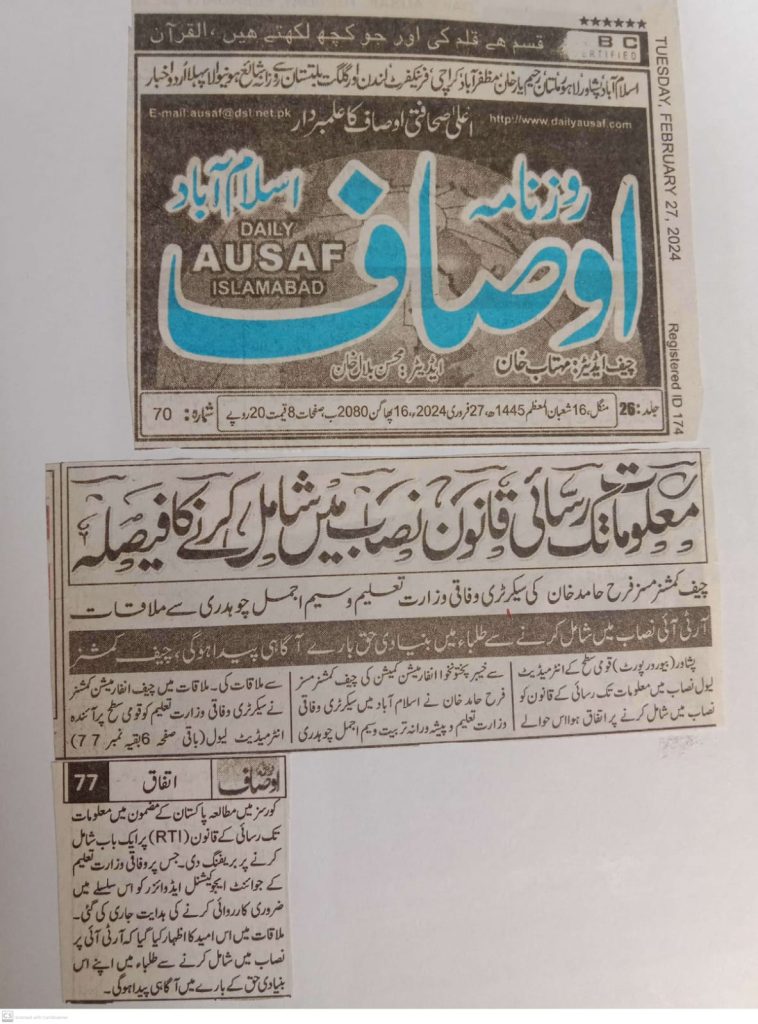 ★★★★★★
قسم ھے قلم کی اور جو کچھ لکھتے ھیں ، القرآن
BC
CERTIFIED
اسلام آباد پشاور لاہور ملتان رحیم یار خان مظفر آباد کراچی فرینکفرٹ لندن اور گلگت بلتستان سے روزانہ شائع ہونیوالا پہلا اردو اخبار
E-mail:ausaf@dsl.net.pk
اعلیٰ صحافتی اوصاف کا علمبردار
http://www.dailyausaf.com
TUESDAY, FEBRUARY 27, 2024
Registered ID 174
روزنامہ
اوصاف
اسلام آباد
DAILY
AUSAF
ISLAMABAD
چیف ایڈیٹر: مہتاب خان
ایڈیٹر: محسن بلال خان
جلد: 26
منگل، 16 شعبان المعظم 1445ھ، 27 فروری 2024ء، 16 پھاگن 2080 ب، صفحات 8 قیمت 20 روپے
شمارہ: 70
معلومات تک رسائی قانون نصاب میں شامل کرنے کا فیصلہ
چیف کمشنر مسز فرح حامد خان کی سیکرٹری وفاقی وزارت تعلیم وسیم اجمل چوہدری سے ملاقات
آر ٹی آئی نصاب میں شامل کرنے سے طلباء میں بنیادی حق بارے آگاہی پیدا ہوگی، چیف کمشنر
پشاور (بیورو رپورٹ) قومی سطح کے انٹرمیڈیٹ
لیول نصاب میں معلومات تک رسائی کے قانون کو
نصاب میں شامل کرنے پر اتفاق ہوا اس حوالے
سے خیبر پختونخوا انفارمیشن کمیشن کی چیف کمشنر مسز
فرح حامد خان نے اسلام آباد میں سیکرٹری وفاقی
وزارت تعلیم و پیشہ ورانہ تربیت وسیم اجمل چوہدری
سے ملاقات کی۔ ملاقات میں چیف انفارمیشن کمشنر
نے سیکرٹری وفاقی وزارت تعلیم کو قومی سطح پر آئندہ
انٹرمیڈیٹ لیول (باقی صفحہ 6 بقیہ نمبر 77)
اوصاف
اتفاق
77
کورسز میں مطالعہ پاکستان کے مضمون میں معلومات
تک رسائی کے قانون (RTI) پر ایک باب شامل
کرنے پر بریفنگ دی۔ جس پر وفاقی وزارت تعلیم
کے جوائنٹ ایجوکیشنل ایڈوائزر کو اس سلسلے میں
ضروری کارروائی کرنے کی ہدایت جاری کی گئی۔
ملاقات میں اس امید کا اظہار کیا گیا کہ آر ٹی آئی پر
نصاب میں شامل کرنے سے طلباء میں اپنے اس
بنیادی حق کے بارے میں آگاہی پیدا ہوگی۔
CS Scanned with CamScanner